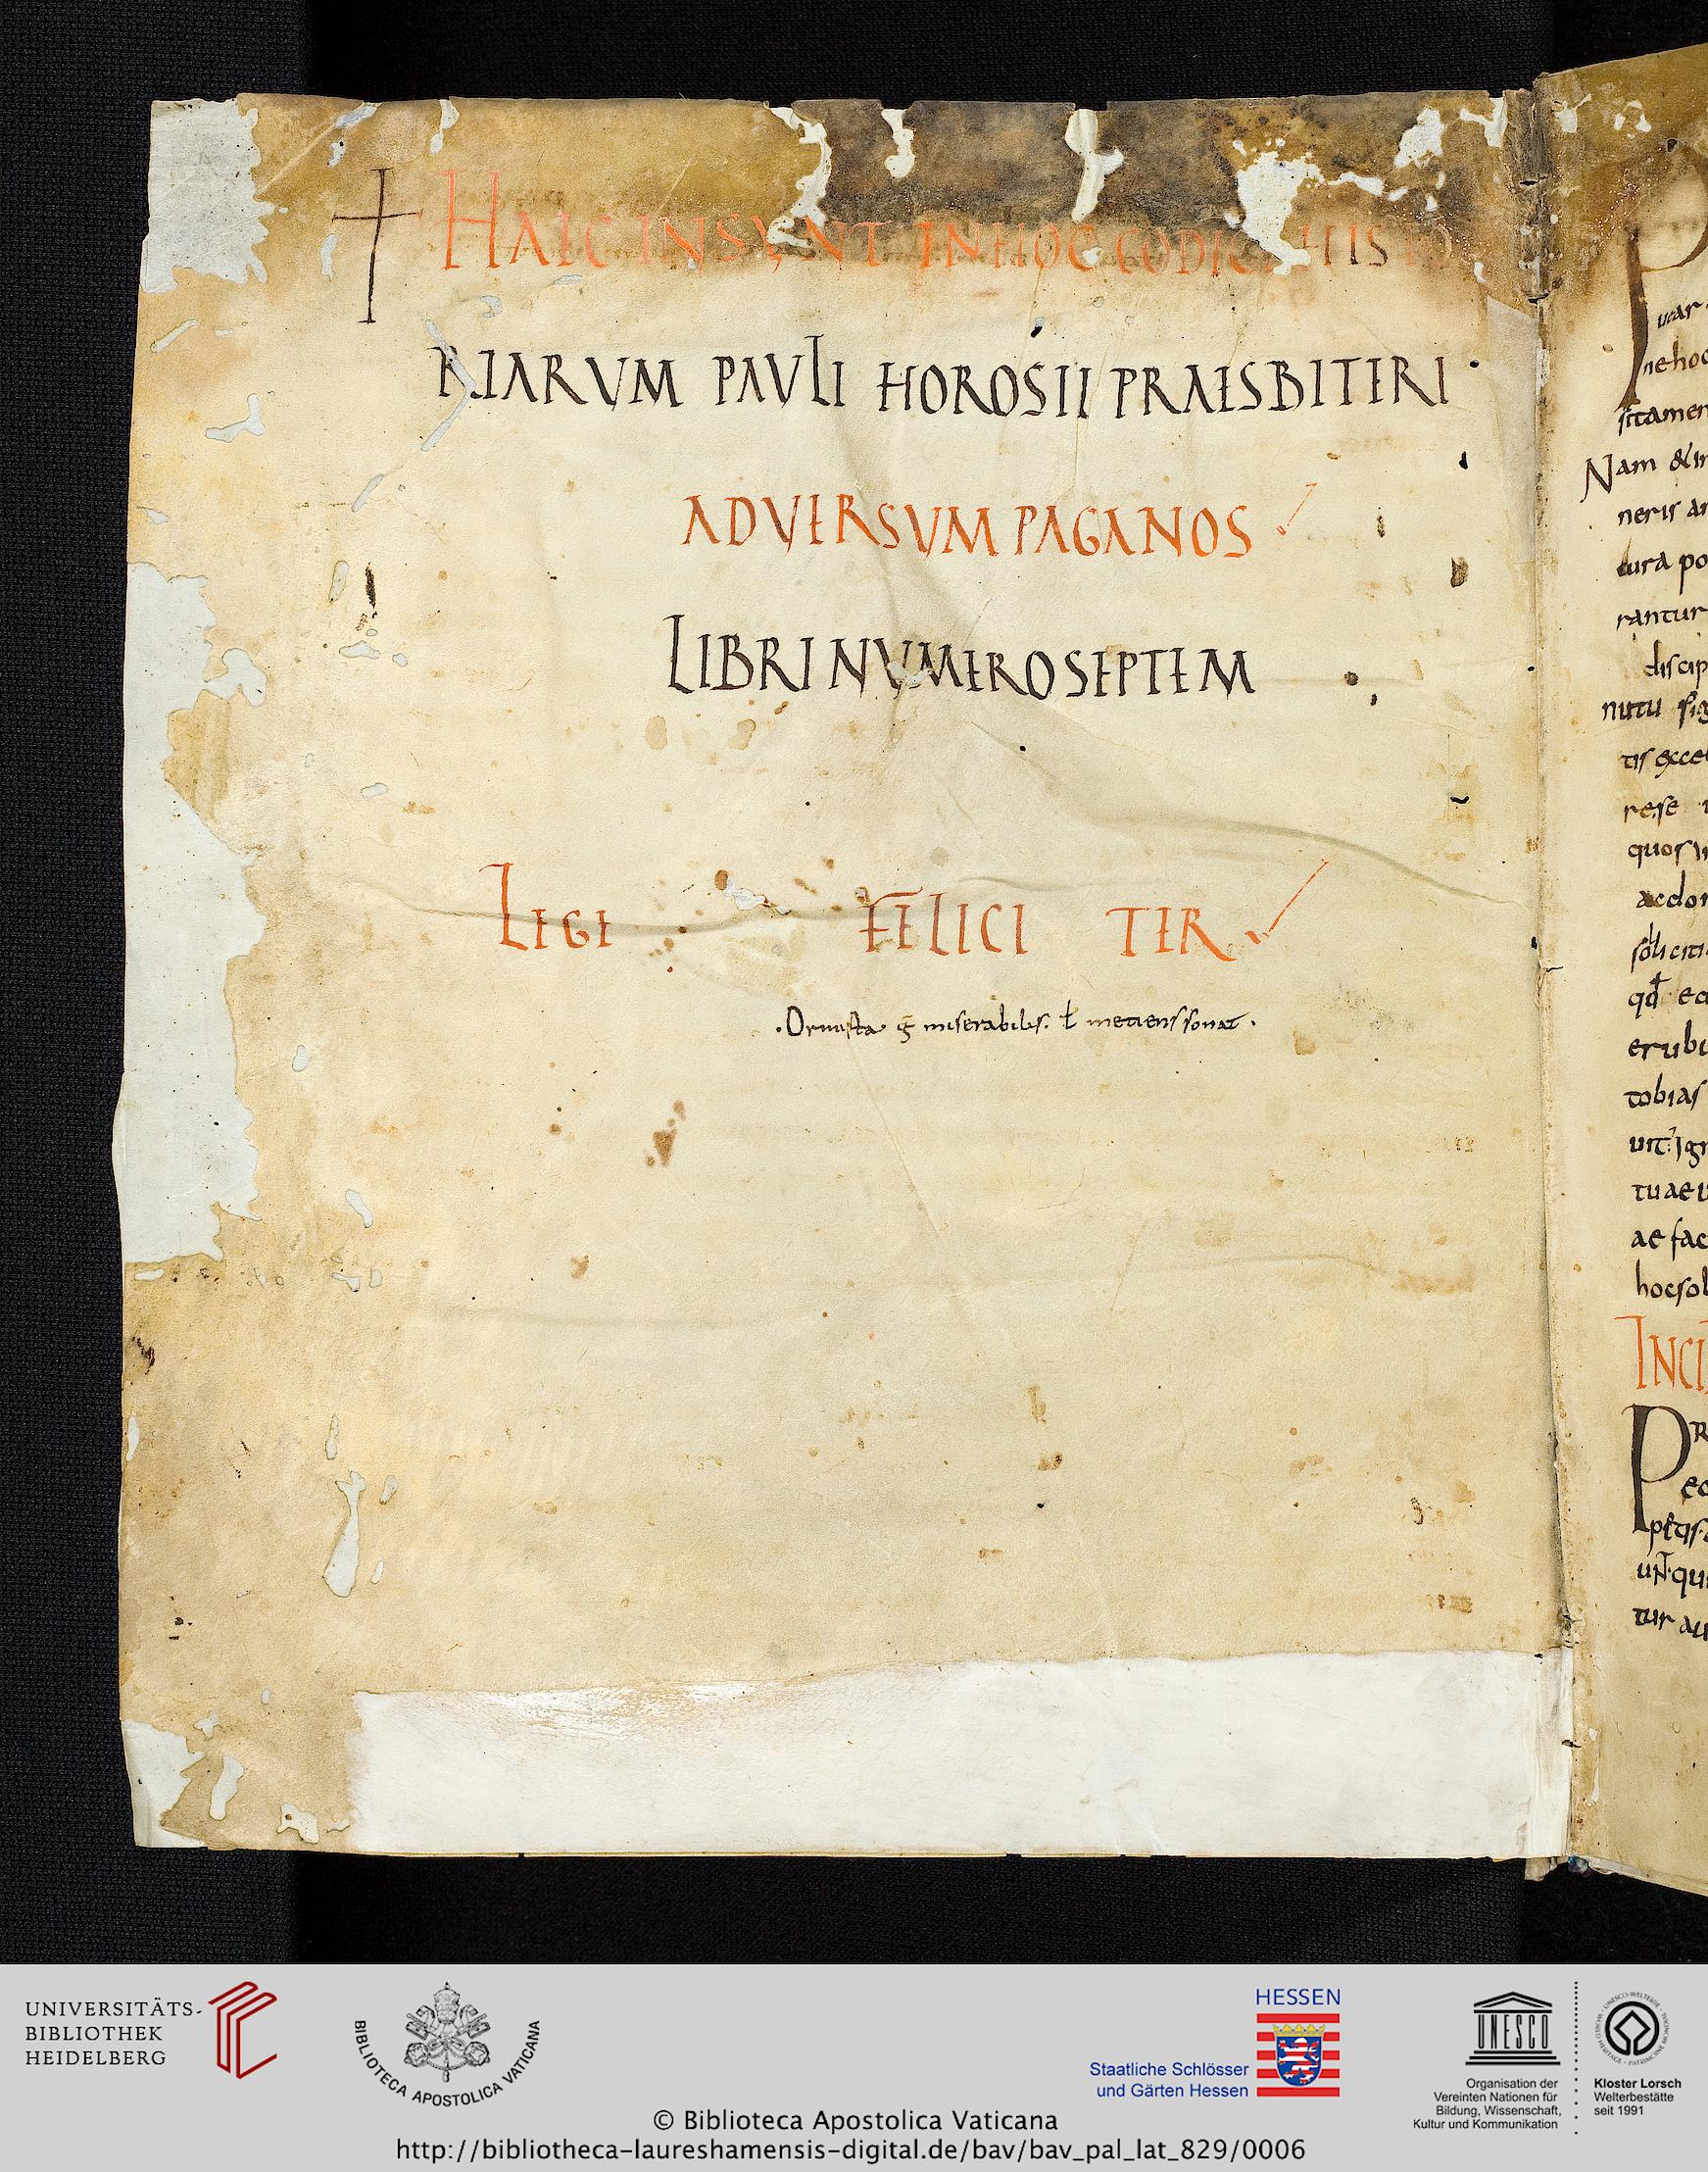 HAEC INSVNT IN HOC CODICE HISTO
RIARVM PAVLI HOROSII PRAESBITERI
ADVERSVM PAGANOS
LIBRI NVMERO SEPTEM
LEGE FELICI TER
·Ormista· g̅ miserabilis· ł metiens sonat·
uar
ne hoc
sitamen
Nam &in
neris an
tura po
rantur
discip
nutu sig
tis exce
rese
quos
ac dom
sollicita
qđ
erubi
tobias
tuae
ae fac
hoc sol
INCI
tur au
UNIVERSITÄTS-
BIBLIOTHEK
HEIDELBERG
BIBLIOTECA APOSTOLICA VATICANA
HESSEN
Staatliche Schlösser
und Gärten Hessen
UNESCO
Organisation der
Vereinten Nationen für
Bildung, Wissenschaft,
Kultur und Kommunikation
Kloster Lorsch
Welterbestätte
seit 1991
© Biblioteca Apostolica Vaticana
http://bibliotheca-laureshamensis-digital.de/bav/bav_pal_lat_829/0006